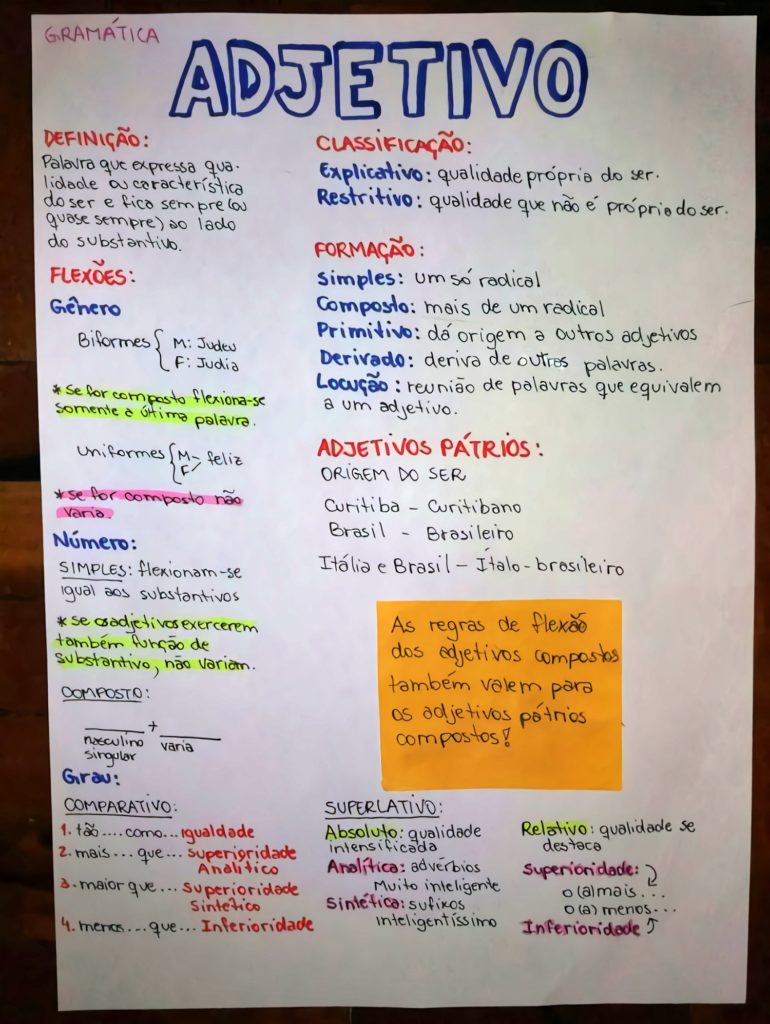 GRAMÁTICA
ADJETIVO
DEFINIÇÃO:
Palavra que expressa qua-
lidade ou característica
do ser e fica sempre (ou
quase sempre) ao lado
do substantivo.
FLEXÕES:
Gênero
Biformes { M: Judeu
F: Judia
* se for composto flexiona-se
somente a última palavra.
Uniformes { M - feliz
F
* se for composto não
varia.
Número:
SIMPLES: flexionam-se
igual aos substantivos
* se os adjetivos exercerem
também função de
substantivo, não variam.
COMPOSTO:
____ + ____
masculino varia
singular
Grau:
COMPARATIVO:
1. tão .... como... igualdade
2. mais ... que ... superioridade
Analítico
3. maior que ... Superioridade
Sintético
4. menos ... que ... Inferioridade
CLASSIFICAÇÃO:
Explicativo: qualidade própria do ser.
Restritivo: qualidade que não é própria do ser.
FORMAÇÃO:
Simples: um só radical
Composto: mais de um radical
Primitivo: dá origem a outros adjetivos
Derivado: deriva de outras palavras.
Locução: reunião de palavras que equivalem
a um adjetivo.
ADJETIVOS PÁTRIOS:
ORIGEM DO SER
Curitiba - Curitibano
Brasil - Brasileiro
Itália e Brasil - Ítalo-brasileiro
As regras de flexão
dos adjetivos compostos
também valem para
os adjetivos pátrios
compostos!
SUPERLATIVO:
Absoluto: qualidade
intensificada
Analítica: advérbios
Muito inteligente
Sintética: sufixos
inteligentíssimo
Relativo: qualidade se
destaca
Superioridade:
o (a) mais ...
o (a) menos ...
Inferioridade